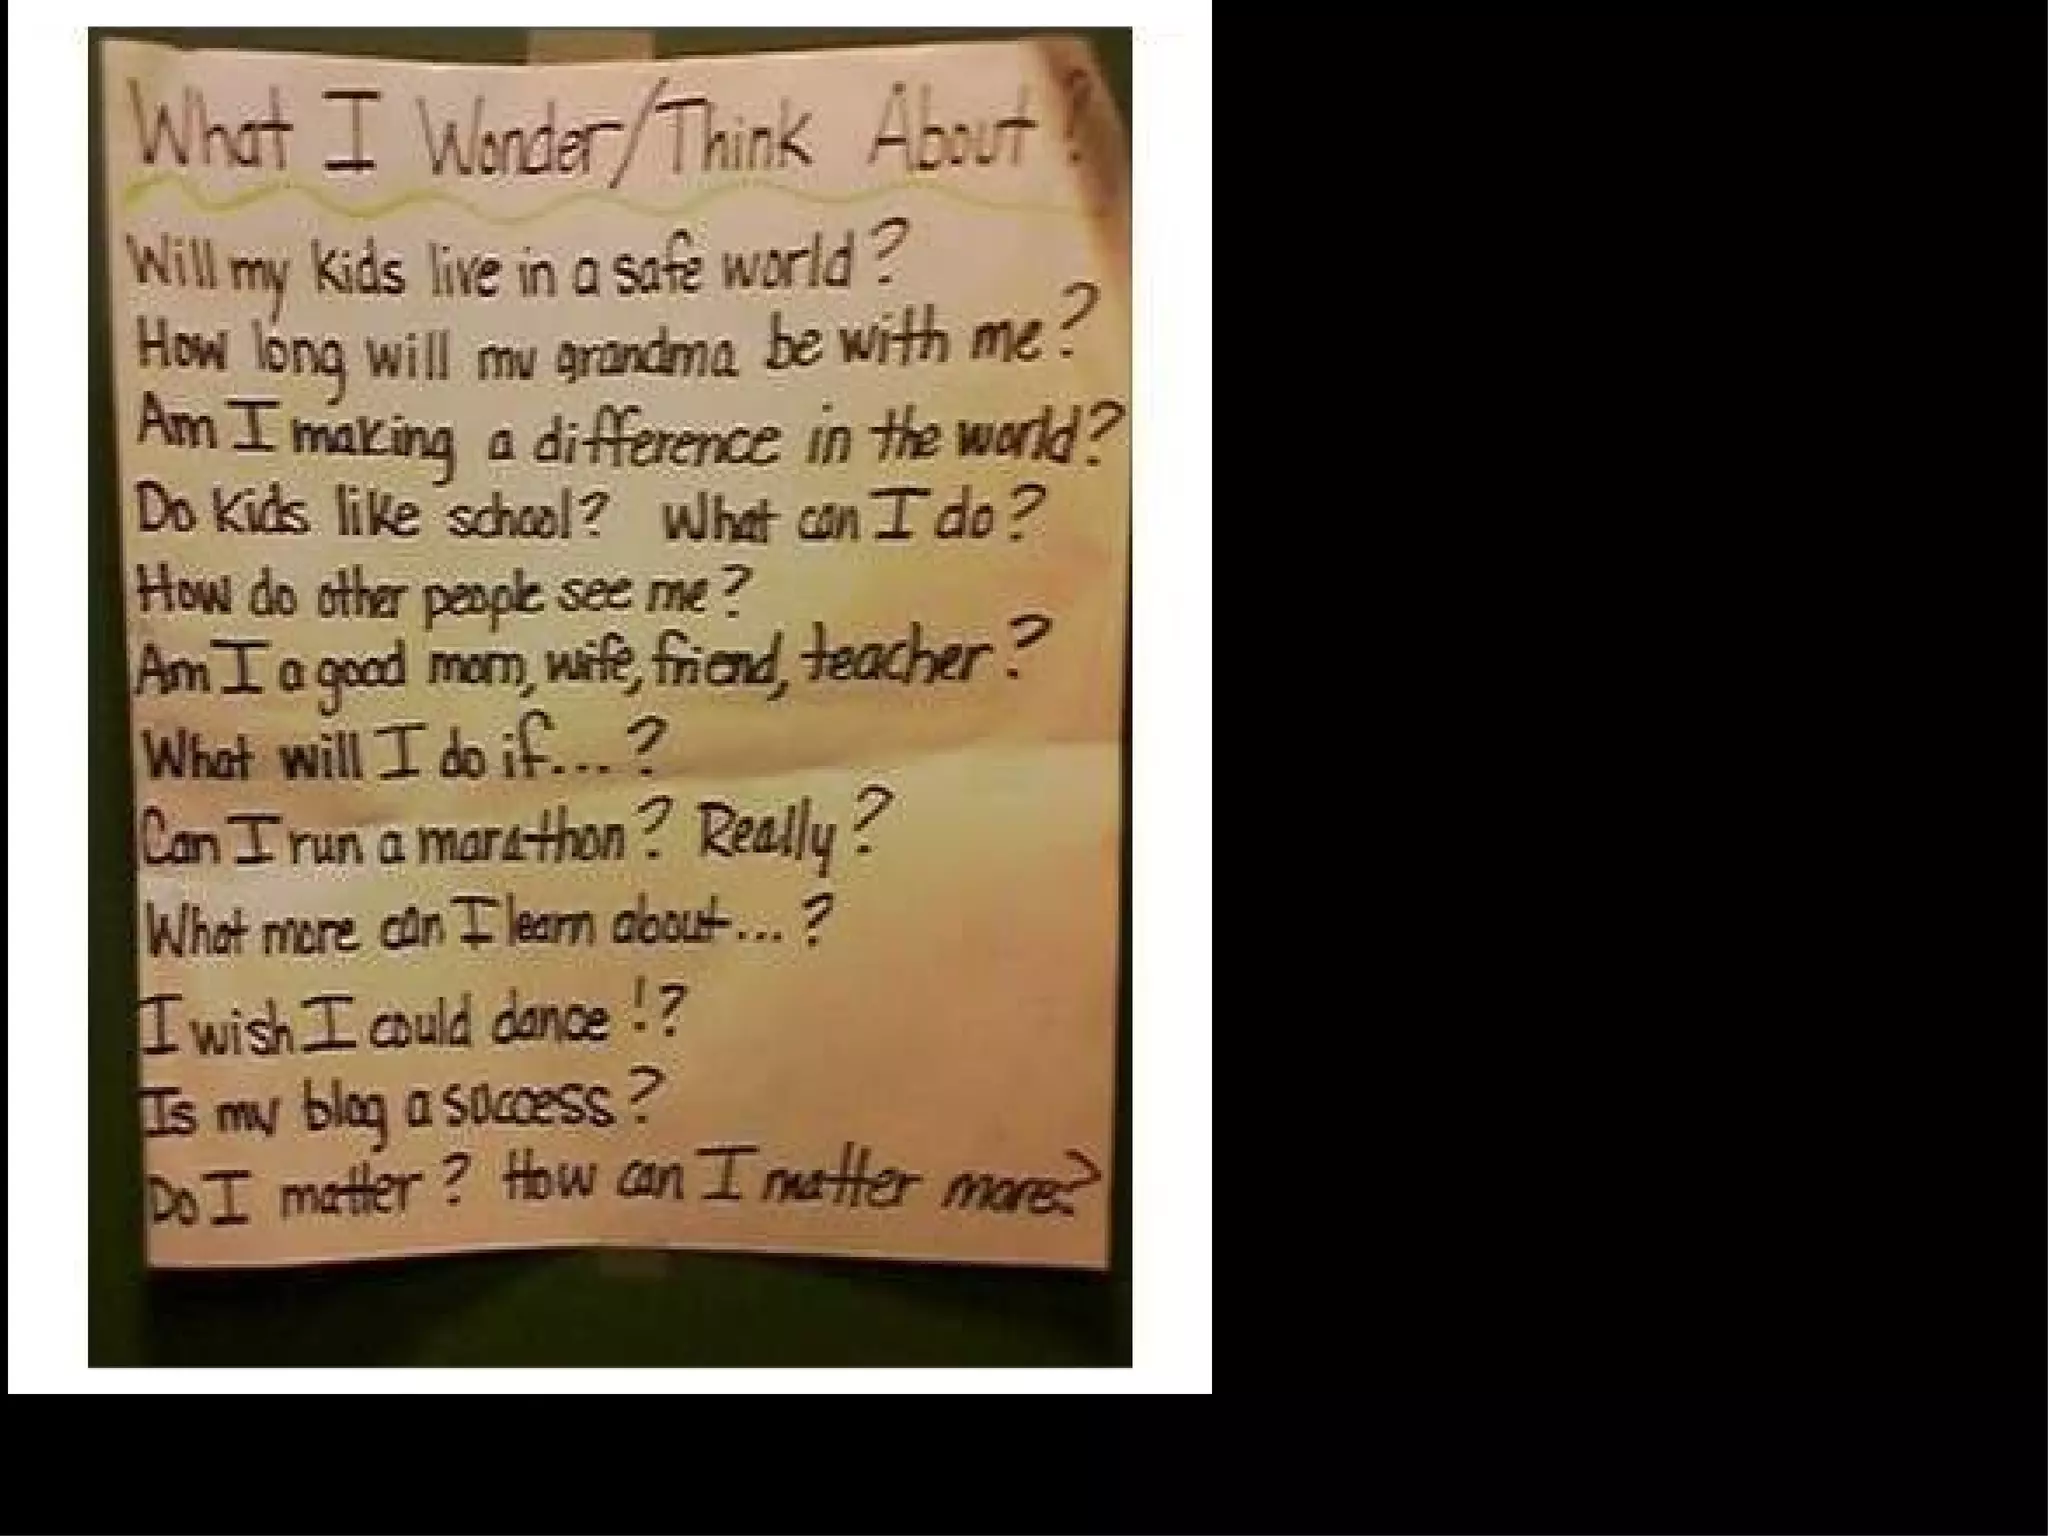 What I Wonder/Think About?
Will my kids live in a safe world?
How long will my grandma be with me?
Am I making a difference in the world?
Do kids like school? What can I do?
How do other people see me?
Am I a good mom, wife, friend, teacher?
What will I do if...?
Can I run a marathon? Really?
What more can I learn about...?
I wish I could dance!?
Is my blog a success?
Do I matter? How can I matter more?